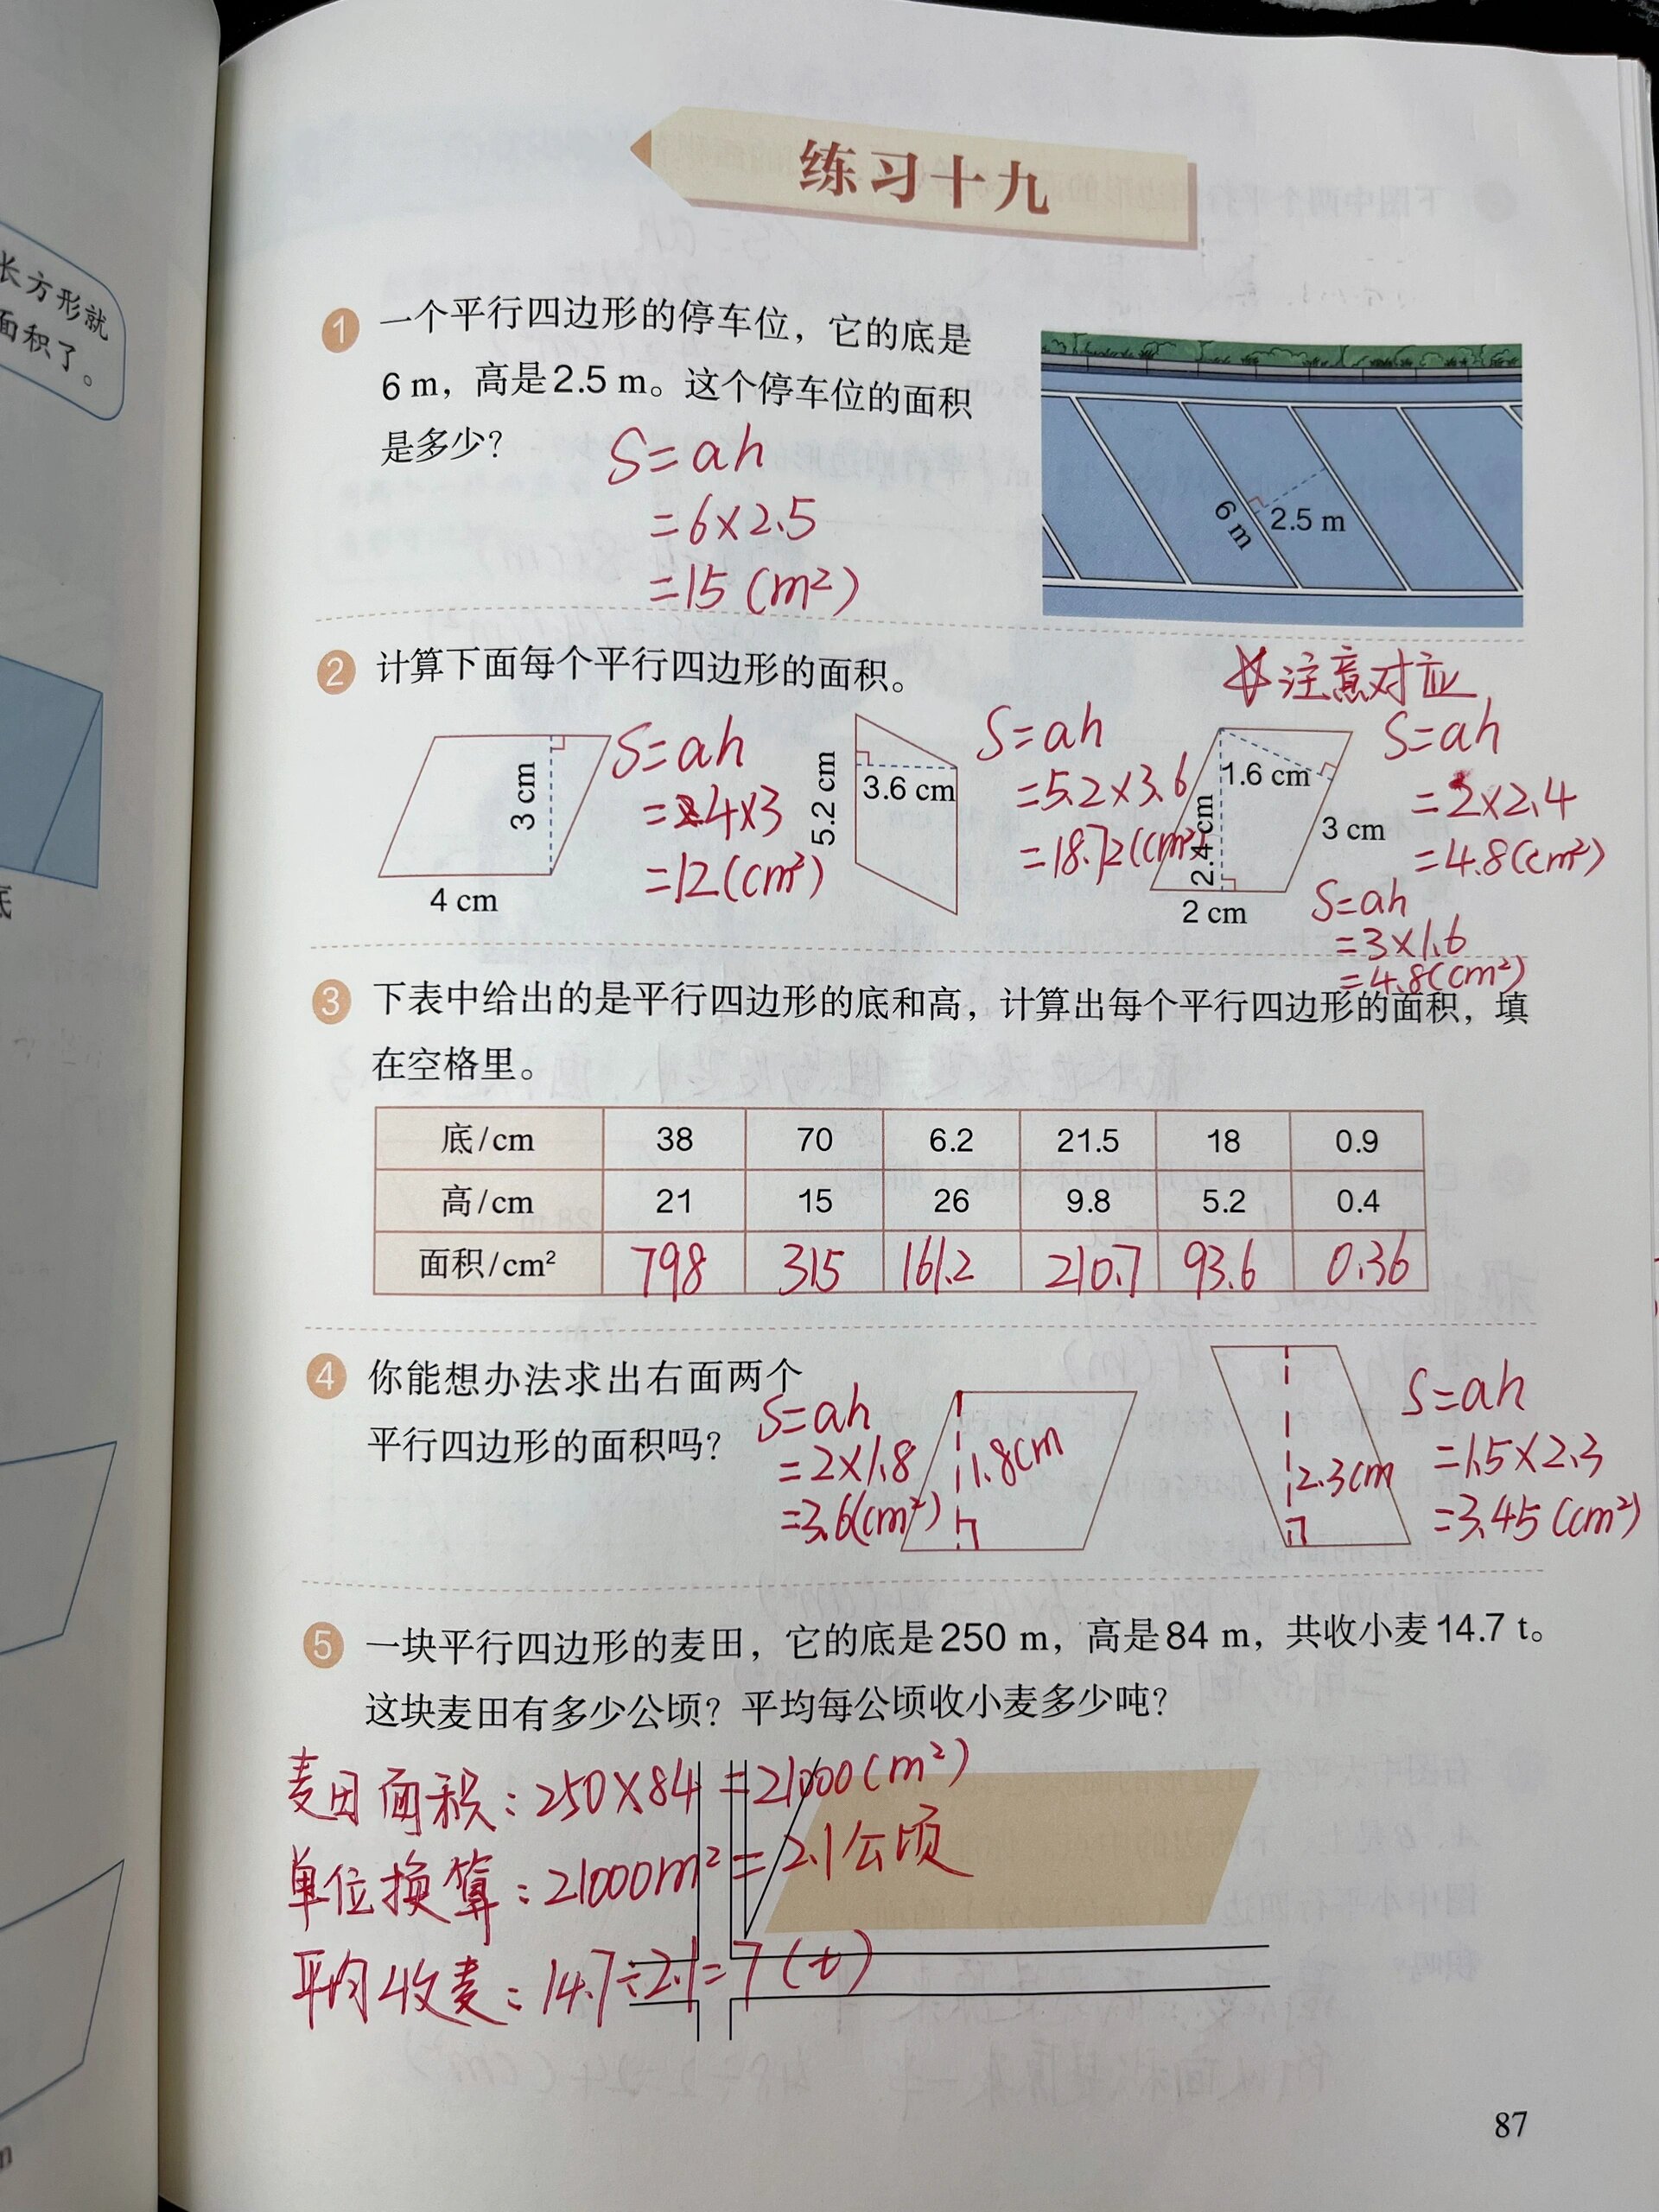 长方形就
面积了。
底
练习十九
1 一个平行四边形的停车位，它的底是
6 m，高是2.5 m。这个停车位的面积
是多少？
S=ah
=6×2.5
=15(m²)
6 m
2.5 m
2 计算下面每个平行四边形的面积。
注意对应
3 cm
4 cm
S=ah
=4×3
=12(cm²)
5.2 cm
3.6 cm
S=ah
=5.2×3.6
=18.72(cm²)
1.6 cm
2.4 cm
3 cm
2 cm
S=ah
=2×2.4
=4.8(cm²)
S=ah
=3×1.6
=4.8(cm²)
3 下表中给出的是平行四边形的底和高，计算出每个平行四边形的面积，填
在空格里。
底/cm 38 70 6.2 21.5 18 0.9
高/cm 21 15 26 9.8 5.2 0.4
面积/cm² 798 315 161.2 210.7 93.6 0.36
4 你能想办法求出右面两个
平行四边形的面积吗？
S=ah
=2×1.8
=3.6(cm²)
1.8cm
2.3cm
S=ah
=1.5×2.3
=3.45(cm²)
5 一块平行四边形的麦田，它的底是250 m，高是84 m，共收小麦14.7 t。
这块麦田有多少公顷？平均每公顷收小麦多少吨？
麦田面积：250×84=21000(m²)
单位换算：21000m²=2.1公顷
平均收麦：14.7÷2.1=7(t)
87